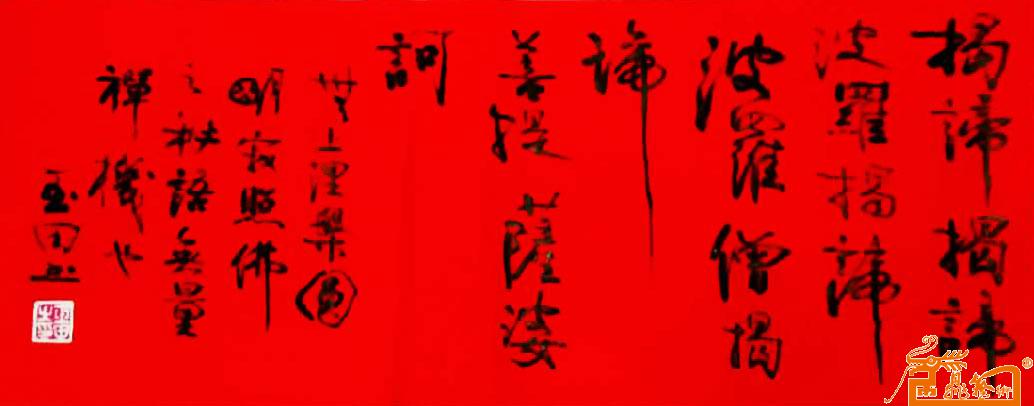 揭諦揭諦
波羅揭諦
波羅僧揭
諦
菩提薩婆
訶
無上涅槃圓
明寂照佛
之秘語無量
禪機也
玉田